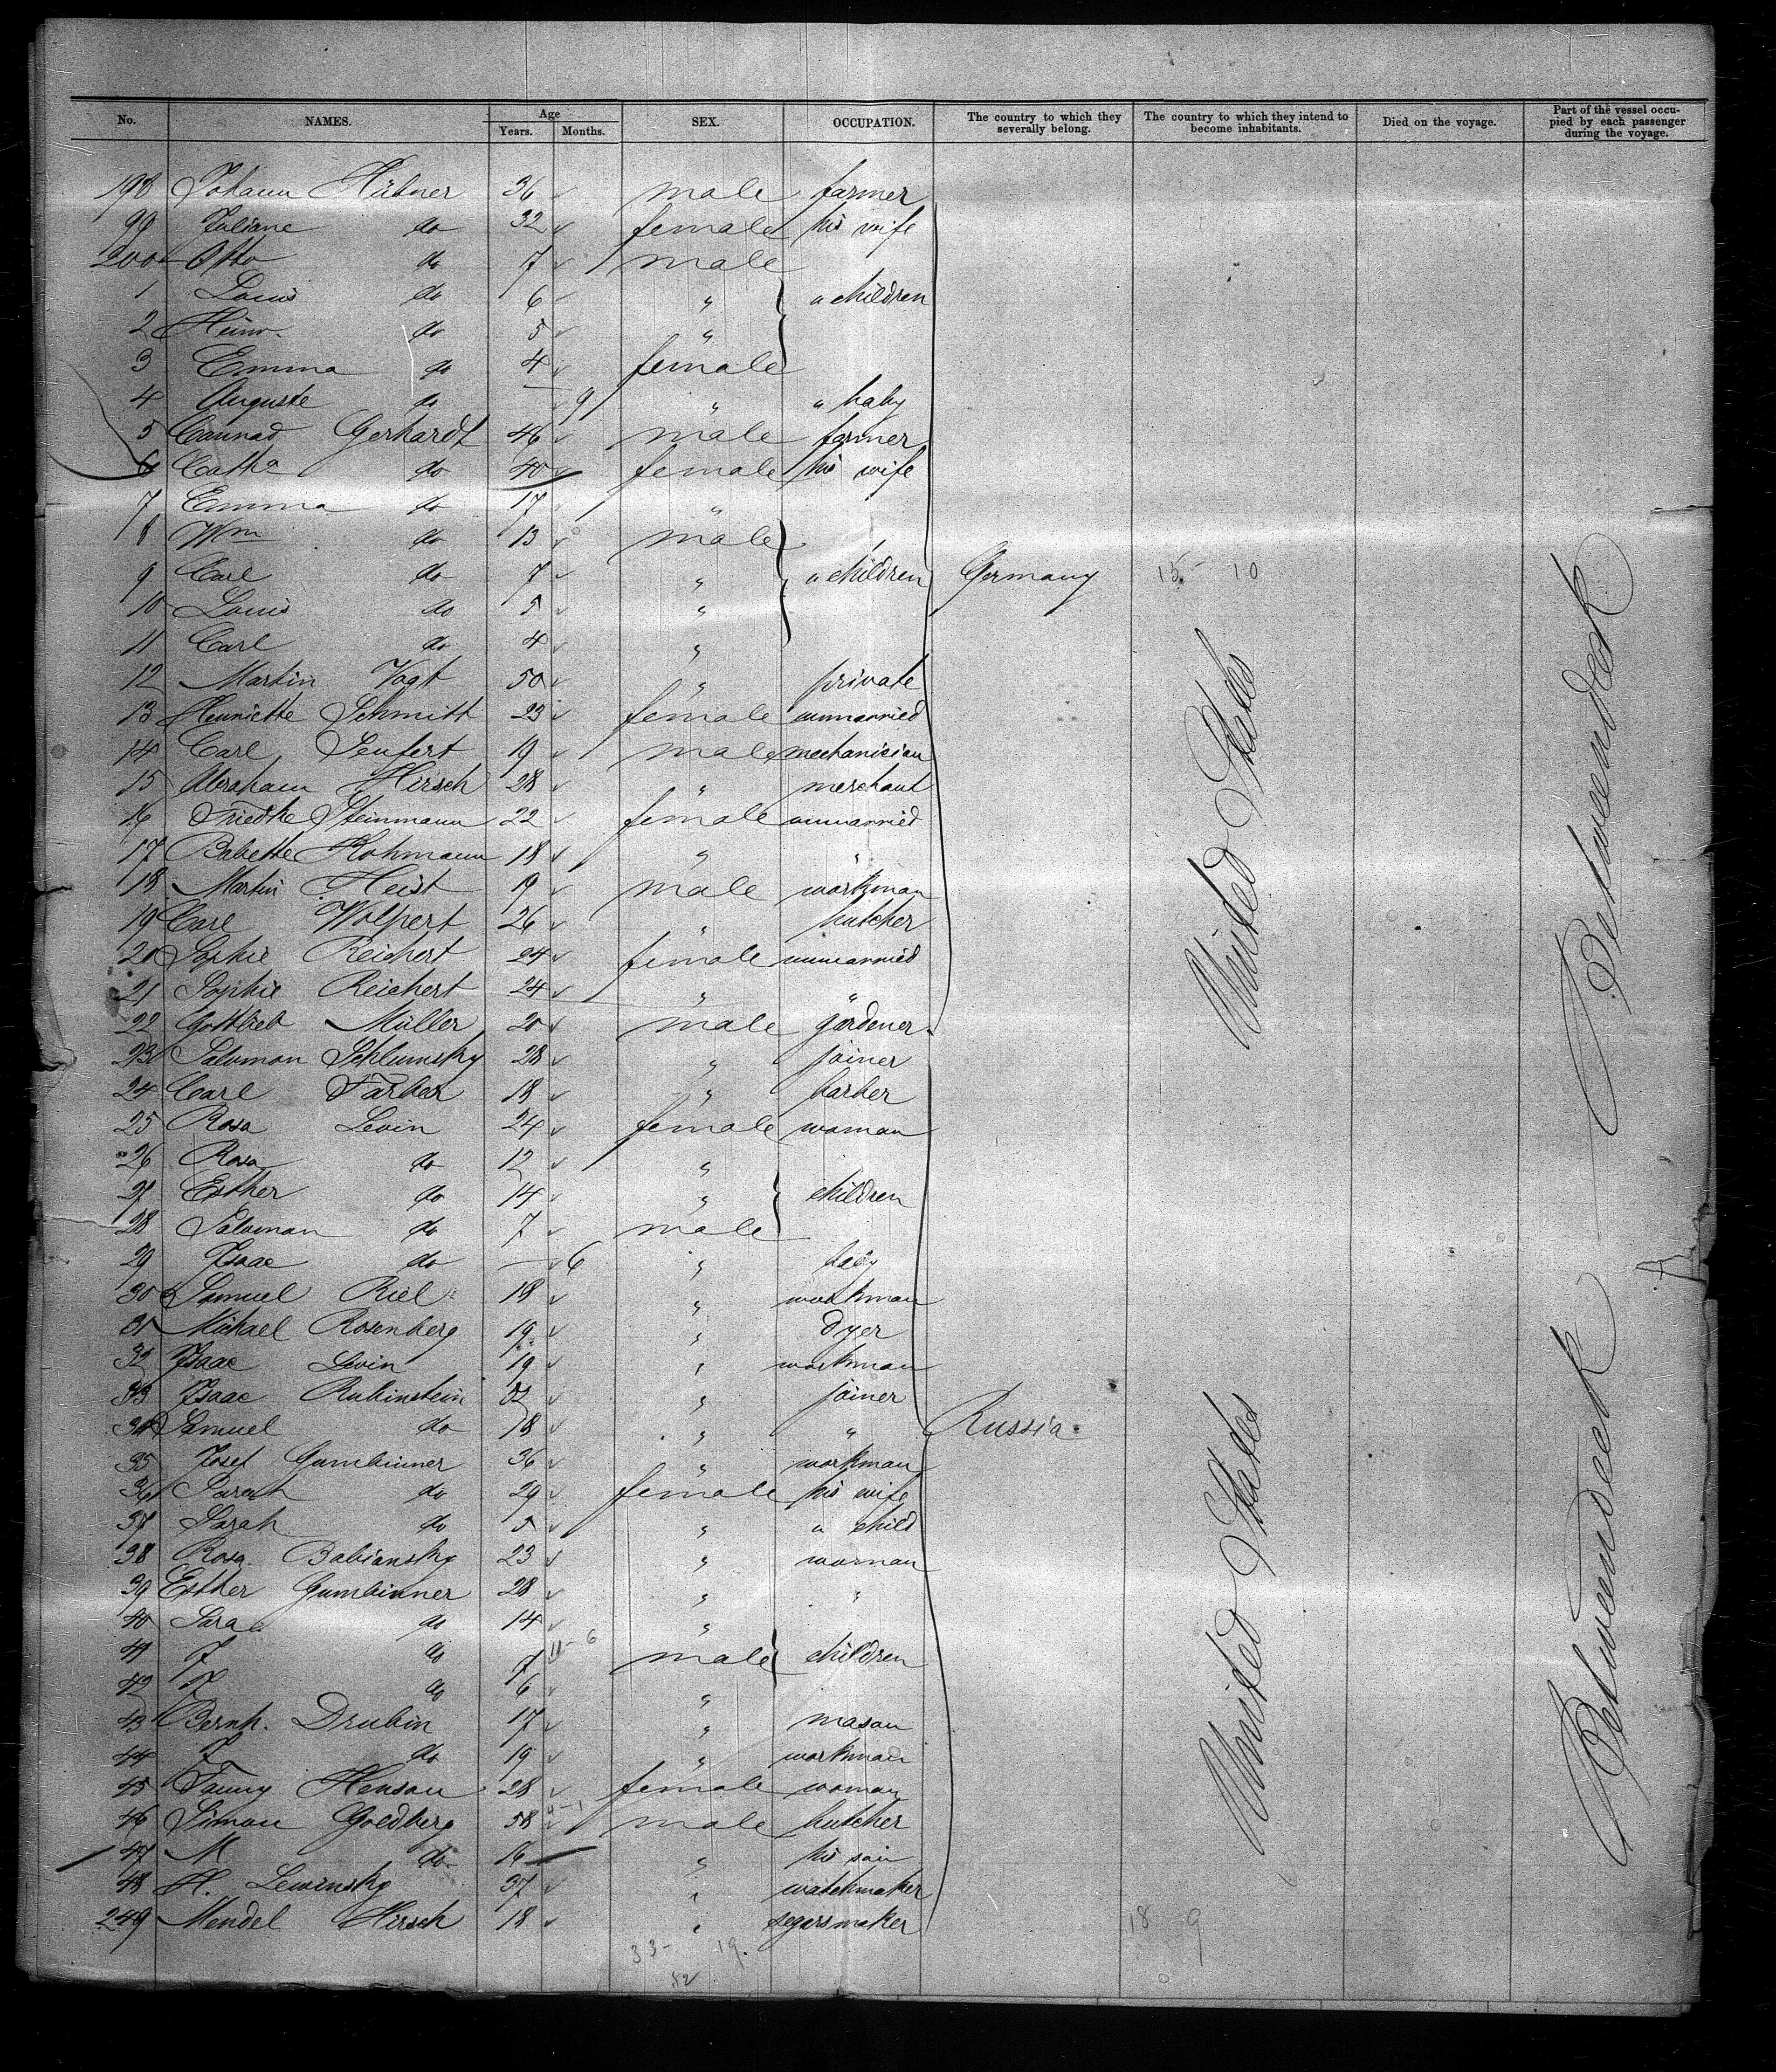 No. NAMES. Age Years. Months. SEX. OCCUPATION. The country to which they severally belong. The country to which they intend to become inhabitants. Died on the voyage. Part of the vessel occupied by each passenger during the voyage.
198 Johann Hübner 36 male farmer
99 Juliane do 32 female his wife
200 Otto do 7 male
1 Louis do 6 " " children
2 Heinr. do 5 "
3 Emma do 4 female
4 Auguste do — 9 " " baby
5 Connad Gerhardt 46 male farmer
6 Catha do 40 female his wife
7 Emma do 17 "
8 Wm do 13 male
9 Carl do 7 " " children Germany 15 - 10
10 Louis do 5 "
11 Carl do 4 "
12 Martin Vogt 50 " private
13 Henriette Schmitt 23 female unmarried
14 Carl Seufert 19 male mechanician
15 Abraham Hirsch 28 " merchant
16 Friedke Steinmann 22 female unmarried
17 Babette Hohmann 18 " "
18 Martin Heist 19 male workman
19 Carl Wolpert 26 " butcher
20 Sophie Reichert 24 female unmarried
21 Sophie Reichert 24 " "
22 Gottlieb Müller 20 male gardener
United States
Betweendeck
23 Salomon Schlumsky 28 " joiner
24 Carl Farber 18 " barber
25 Rosa Levin 24 female woman
26 Rosa do 12 "
27 Esther do 14 " children
28 Salomon do 7 male
29 Isaac do — 6 " baby
30 Samuel Riel 18 " workman
31 Michael Rosenberg 19 " dyer
32 Isaac Levin 19 " workman
33 Isaac Rubinstein " joiner
34 Samuel do 18 " " Russia
35 Josef Gumbinner 36 " workman
36 Sarah do 29 female his wife
37 Sarah do 5 " " child
38 Rosa Babiansky 23 " woman
39 Esther Gumbinner 28 " "
40 Sara do 14 "
41 J do 7 11 - 6 male children
42 do 6 "
43 Bernh. Drubin 17 " mason
44 J do 19 " workman
45 Fanny Henson 28 female woman
46 Simon Goldberg 58 4 - 1 male butcher
47 M do 16 " his son
48 H. Lewinsky 37 " watchmaker
249 Mendel Hirsch 18 " segarsmaker
United States
Betweendeck
18 9
33 - 19.
52